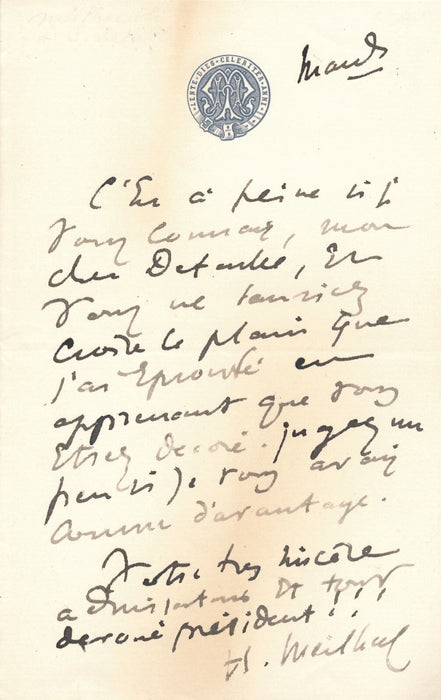 LENTE DIES CELERITER ANNI
Mardi
C'Est à peine si j
vous connais, mon
cher Detaille, Et
vous ne sauriez
croire le plaisir que
j'ai Eprouvé en
apprenant que vous
Etiez decoré. jugez un
peu si je vous avais
connu d'avantage.
Votre très sincère
admirateur Et tout
devoué président!!!
H. Meilhac